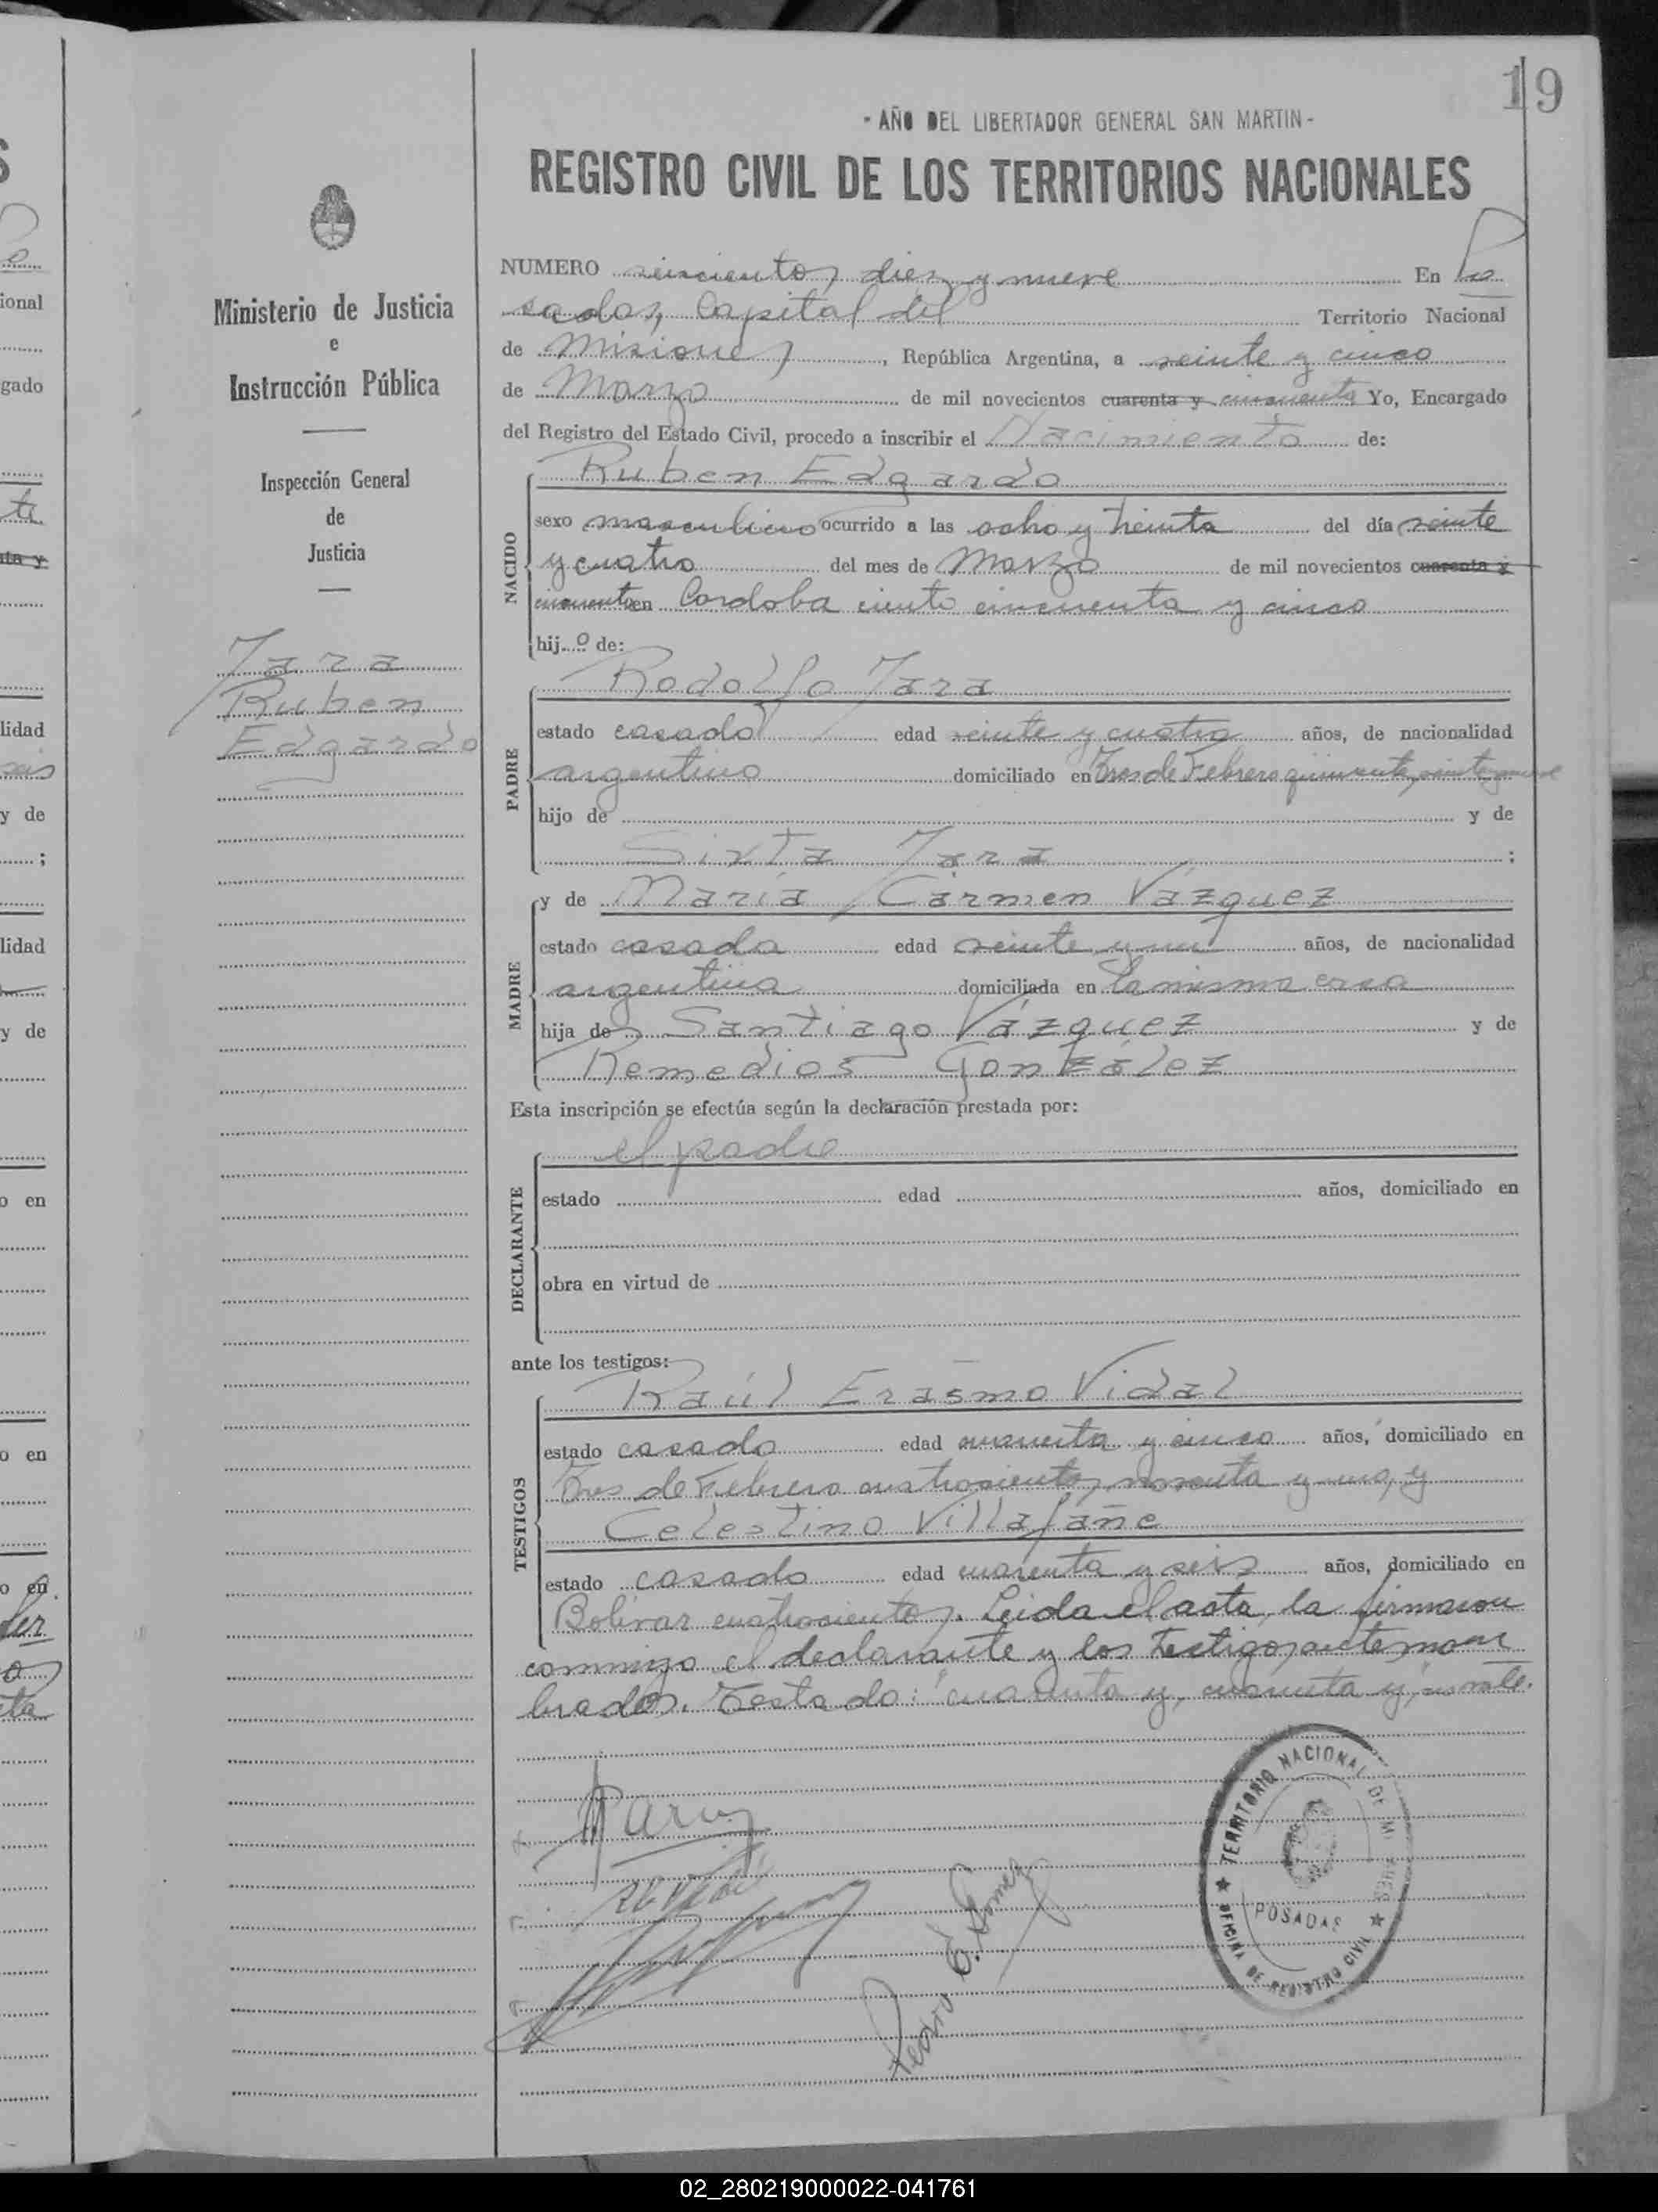 19
- AÑO DEL LIBERTADOR GENERAL SAN MARTIN -
REGISTRO CIVIL DE LOS TERRITORIOS NACIONALES
Ministerio de Justicia
e
Instrucción Pública
Inspección General
de
Justicia
Jara
Ruben
Edgardo
NUMERO seiscientos diez y nueve En Po
sadas, Capital del Territorio Nacional
de Misiones, República Argentina, a veinte y cinco
de Marzo de mil novecientos cuarenta y cincuenta Yo, Encargado
del Registro del Estado Civil, procedo a inscribir el Nacimiento de:
NACIDO
Ruben Edgardo
sexo masculino ocurrido a las ocho y treinta del día veinte
y cuatro del mes de Marzo de mil novecientos cuarenta y
cincuenta en Cordoba ciento cincuenta y cinco
hijo de:
PADRE
Rodolfo Jara
estado casado edad veinte y cuatro años, de nacionalidad
argentino domiciliado en Tres de Febrero quinientos veinte y nueve
hijo de y de
Sixta Jara ;
MADRE
y de María Carmen Vázquez
estado casada edad veinte y un años, de nacionalidad
argentina domiciliada en la misma casa
hija de Santiago Vázquez y de
Remedios González
Esta inscripción se efectúa según la declaración prestada por:
DECLARANTE
el padre
estado edad años, domiciliado en
obra en virtud de
ante los testigos:
TESTIGOS
Raúl Erasmo Vidal
estado casado edad cuarenta y cinco años, domiciliado en
Tres de Febrero cuatrocientos noventa y uno, y
Celestino Villafañe
estado casado edad cuarenta y seis años, domiciliado en
Bolívar cuatrocientos. Leida el acta, la firmaron
conmigo el declarante y los testigos antes nom
brados. Testado: "cuarenta y, cuarenta y", no vale.
Pedro E. Gomez
TERRITORIO NACIONAL DE MISIONES
POSADAS
OFICINA DE REGISTRO CIVIL
ional
gado
lidad
y de
;
lidad
y de
o en
o en
o en
02_280219000022-041761